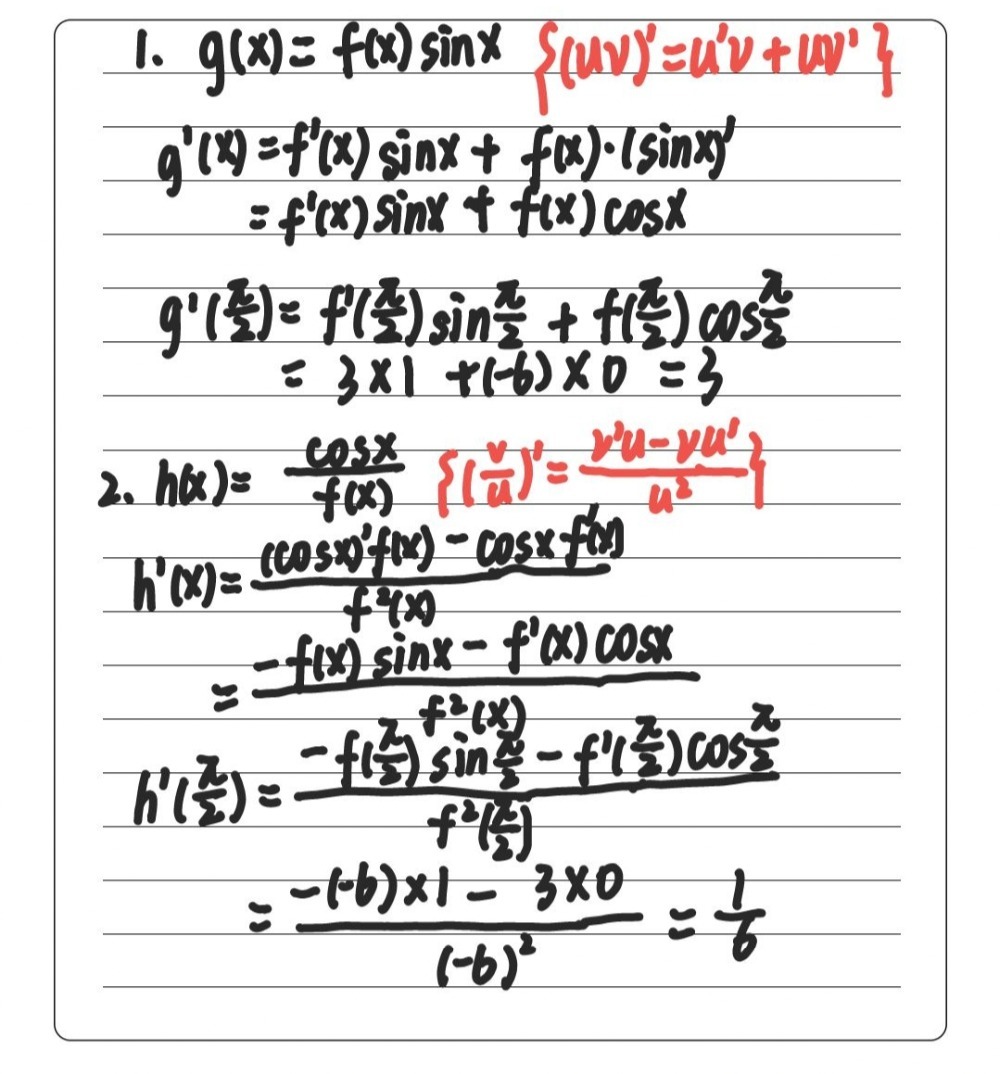 1. g(x) = f(x) sinx {(uv)' = u'v + uv'}
g'(x) = f'(x) sinx + f(x)·(sinx)'
= f'(x) sinx + f(x) cosx
g'(π/2) = f'(π/2) sin π/2 + f(π/2) cos π/2
= 3×1 +(-6)×0 = 3
2. h(x) = cosx / f(x) {(v/u)' = (v'u - vu') / u²}
h'(x) = ((cosx)'f(x) - cosx f'(x)) / f²(x)
= (-f(x) sinx - f'(x) cosx) / f²(x)
h'(π/2) = (-f(π/2) sin π/2 - f'(π/2) cos π/2) / f²(π/2)
= (-(-6)×1 - 3×0) / (-6)² = 1/6